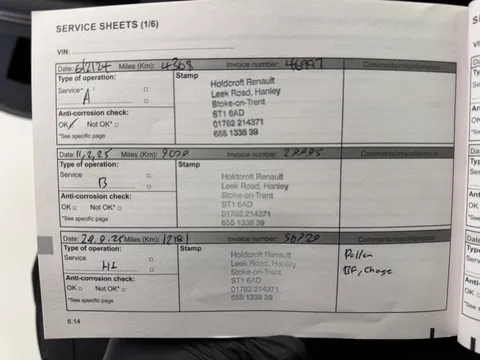 SERVICE SHEETS (1/6)
VIN:
Date: 6/2/24 Miles (Km): 4308 Invoice number: Comments/miscellaneous
Type of operation:
Service*
A
Anti-corrosion check:
OK Not OK*
*See specific page
Stamp
Holdcroft Renault
Leek Road, Hanley
Stoke-on-Trent
ST1 6AD
01782 214371
655 1338 39
Date: 11,2,25 Miles (Km): 9000 Invoice number: Comments/miscellaneous
Type of operation:
Service
B
Anti-corrosion check:
OK Not OK*
*See specific page
Stamp
Holdcroft Renault
Leek Road, Hanley
Stoke-on-Trent
ST1 6AD
01782 214371
655 1338 39
Date: 24.9.25 Miles (Km): 12181 Invoice number: 50730 Comments/miscellaneous
Type of operation:
Service
Anti-corrosion check:
OK Not OK*
*See specific page
Stamp
Holdcroft Renault
Leek Road, Hanley
Stoke-on-Trent
ST1 6AD
01782 214371
655 1338 39
Pollen
BF, Change
6.14